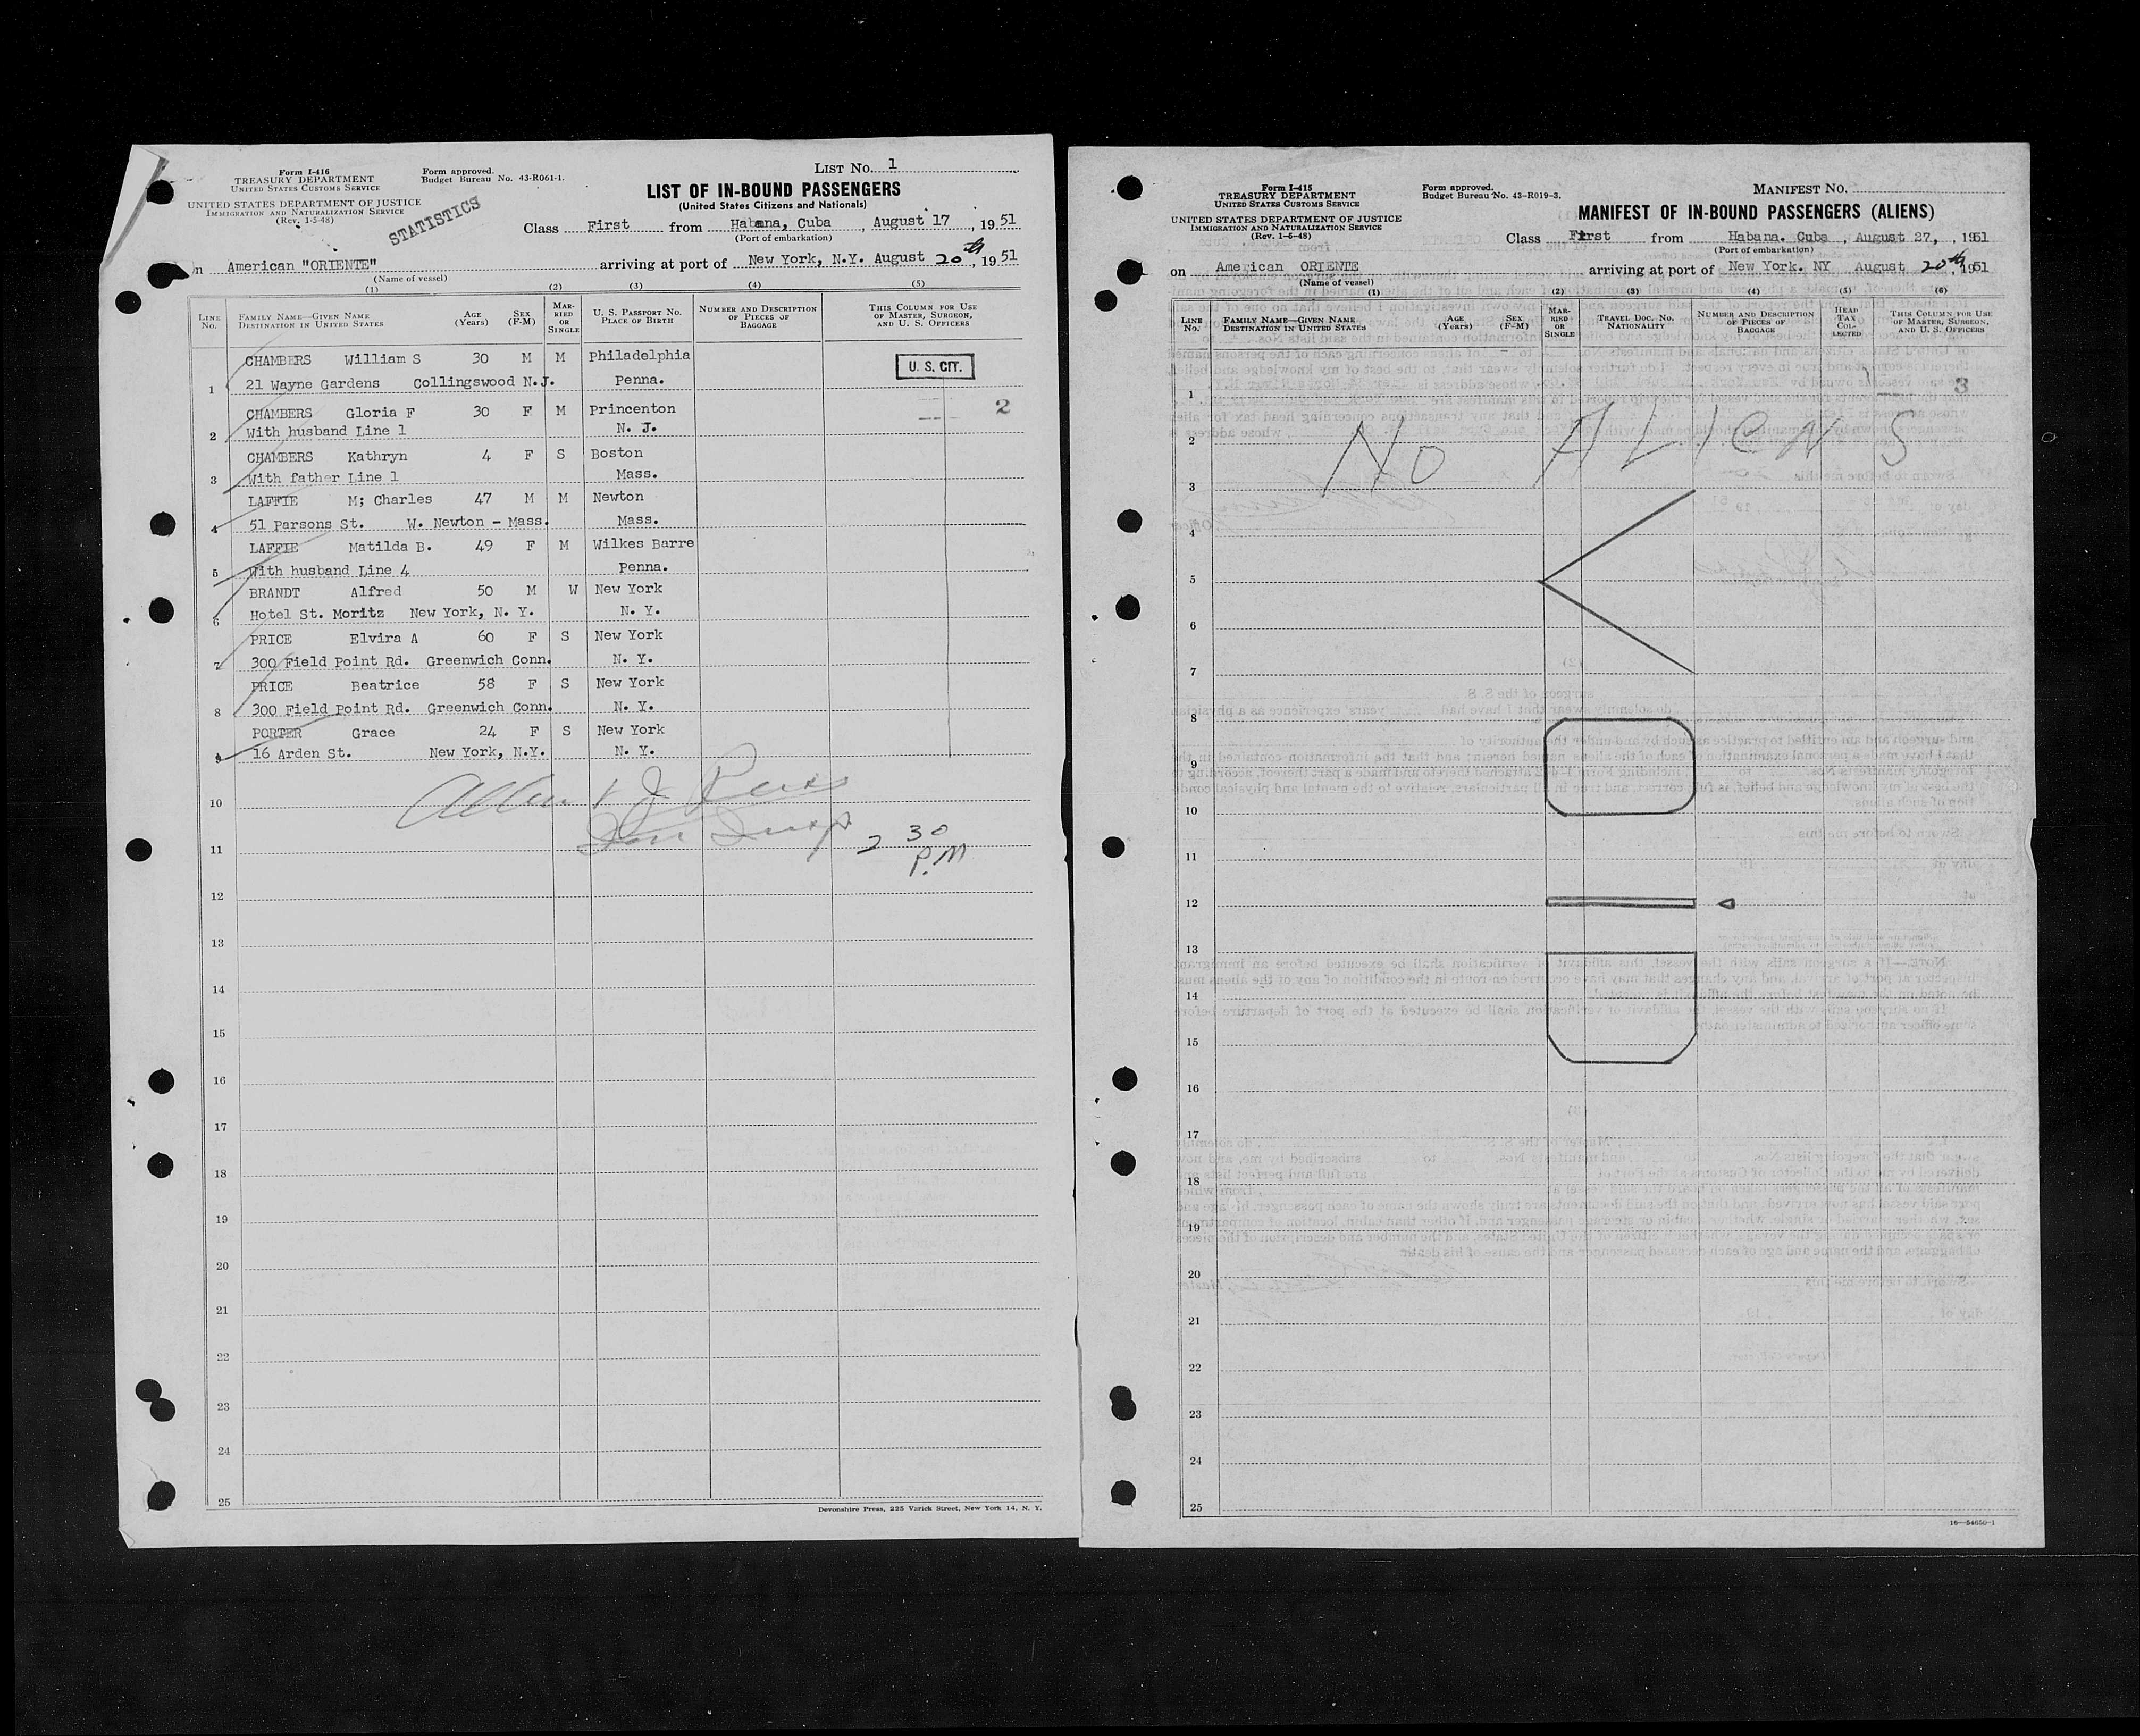 LIST NO. 1
Form I-416
TREASURY DEPARTMENT
UNITED STATES CUSTOMS SERVICE
UNITED STATES DEPARTMENT OF JUSTICE
IMMIGRATION AND NATURALIZATION SERVICE
(Rev. 1-5-48)
Form approved.
Budget Bureau No. 43-R061-1.
STATISTICS
LIST OF IN-BOUND PASSENGERS
(United States Citizens and Nationals)
Class First from Habana, Cuba, August 17, 19 51
(Port of embarkation)
on American "ORIENTE" arriving at port of New York, N.Y. August 20th, 19 51
(Name of vessel)
(1) (2) (3) (4) (5)
LINE NO. FAMILY NAME—GIVEN NAME DESTINATION IN UNITED STATES AGE (Years) SEX (F-M) MARRIED OR SINGLE U. S. PASSPORT NO. PLACE OF BIRTH NUMBER AND DESCRIPTION OF PIECES OF BAGGAGE THIS COLUMN FOR USE OF MASTER, SURGEON, AND U. S. OFFICERS
CHAMBERS William S 30 M M Philadelphia U. S. CIT.
1 21 Wayne Gardens Collingswood N.J. Penna.
CHAMBERS Gloria F 30 F M Princenton 2
2 With husband Line 1 N. J.
CHAMBERS Kathryn 4 F S Boston
3 With father Line 1 Mass.
LAFFIE M; Charles 47 M M Newton
4 51 Parsons St. W. Newton - Mass. Mass.
LAFFIE Matilda B. 49 F M Wilkes Barre
5 With husband Line 4 Penna.
BRANDT Alfred 50 M W New York
6 Hotel St. Moritz New York, N. Y. N. Y.
PRICE Elvira A 60 F S New York
7 300 Field Point Rd. Greenwich Conn. N. Y.
PRICE Beatrice 58 F S New York
8 300 Field Point Rd. Greenwich Conn. N. Y.
PORTER Grace 24 F S New York
9 16 Arden St. New York, N.Y. N. Y.
10
11 2 30
P.M
12
13
14
15
16
17
18
19
20
21
22
23
24
25
Devonshire Press, 225 Varick Street, New York 14, N. Y.
Form I-415
TREASURY DEPARTMENT
UNITED STATES CUSTOMS SERVICE
UNITED STATES DEPARTMENT OF JUSTICE
IMMIGRATION AND NATURALIZATION SERVICE
(Rev. 1-5-48)
Form approved.
Budget Bureau No. 43-R019-3.
MANIFEST NO.
MANIFEST OF IN-BOUND PASSENGERS (ALIENS)
Class First from Habana. Cuba, August 27, , 1951
(Port of embarkation)
on American ORIENTE arriving at port of New York. NY August 20th, 1951
(Name of vessel)
(1) (2) (3) (4) (5) (6)
LINE NO. FAMILY NAME—GIVEN NAME DESTINATION IN UNITED STATES AGE (Years) SEX (F-M) MARRIED OR SINGLE TRAVEL DOC. NO. NATIONALITY NUMBER AND DESCRIPTION OF PIECES OF BAGGAGE HEAD TAX COLLECTED THIS COLUMN FOR USE OF MASTER, SURGEON, AND U. S. OFFICERS
1 3
2 No ALIENS
3
4
5
6
7
8
9
10
11
12
13
14
15
16
17
18
19
20
21
22
23
24
25
16—54650-1